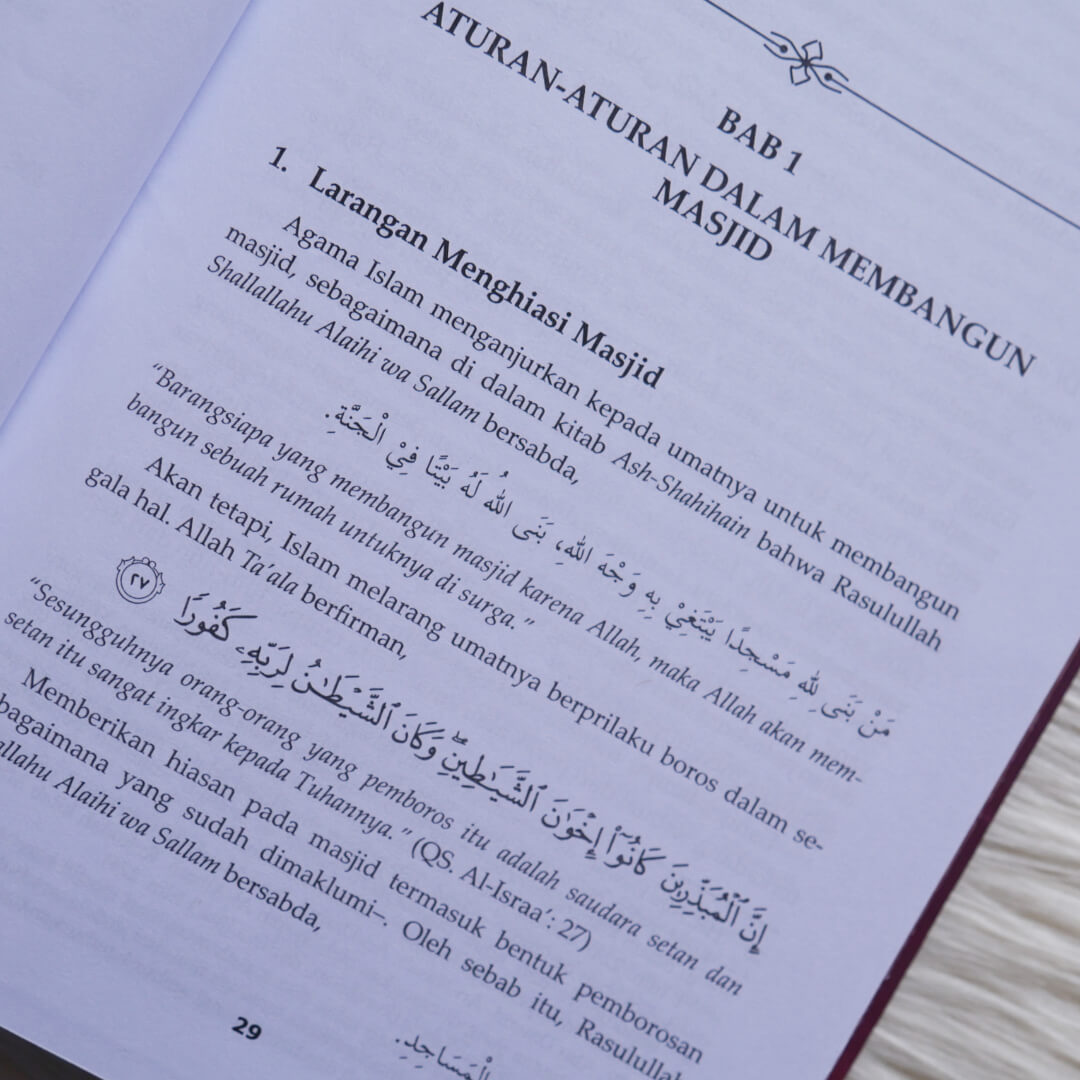 BAB 1
ATURAN-ATURAN DALAM MEMBANGUN
MASJID
1. Larangan Menghiasi Masjid
Agama Islam menganjurkan kepada umatnya untuk membangun
masjid, sebagaimana di dalam kitab Ash-Shahihain bahwa Rasulullah
Shallallahu Alaihi wa Sallam bersabda,
مَنْ بَنَى لِلهِ مَسْجِدًا يَبْتَغِيْ بِهِ وَجْهَ اللهِ، بَنَى اللهُ لَهُ بَيْتًا فِيْ الْجَنَّةِ.
“Barangsiapa yang membangun masjid karena Allah, maka Allah akan mem-
bangun sebuah rumah untuknya di surga.”
Akan tetapi, Islam melarang umatnya berprilaku boros dalam se-
gala hal. Allah Ta’ala berfirman,
إِنَّ ٱلْمُبَذِّرِينَ كَانُوٓا۟ إِخْوَٰنَ ٱلشَّيَٰطِينِ ۖ وَكَانَ ٱلشَّيْطَٰنُ لِرَبِّهِۦ كَفُورًا ٢٧
“Sesungguhnya orang-orang yang pemboros itu adalah saudara setan dan
setan itu sangat ingkar kepada Tuhannya.” (QS. Al-Israa‘: 27)
Memberikan hiasan pada masjid termasuk bentuk pemborosan
bagaimana yang sudah dimaklumi–. Oleh sebab itu, Rasulullah
allahu Alaihi wa Sallam bersabda,
الْمَسَاجِدِ.
29